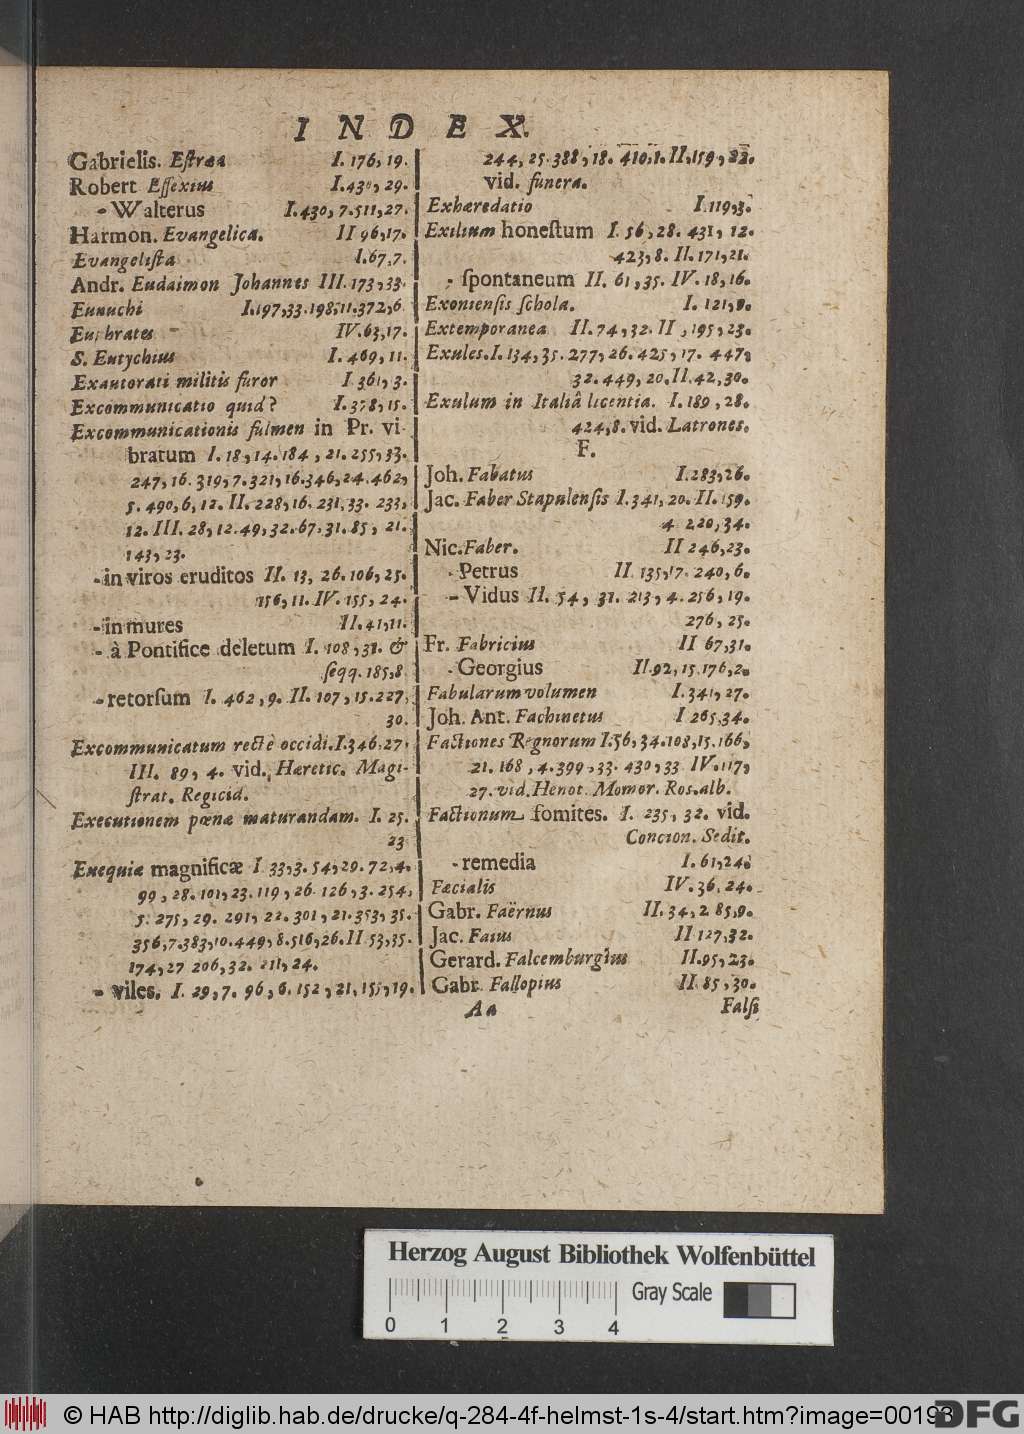 INDEX.
Gabrielis. Eſtræa I. 176, 19.
Robert Eſſexius I. 430, 29.
- Walterus I. 430, 7. 511, 27.
Harmon. Evangelica. II 96, 17.
Evangeliſta I. 67, 7.
Andr. Eudaimon Johannes III. 173, 33.
Eunuchi I. 197, 33. 198, 11. 372, 6
Euphrates IV. 63, 17.
S. Eutychius I. 469, 11.
Exautorati militis furor I 361, 3.
Excommunicatio quid? I. 378, 15.
Excommunicationis fulmen in Pr. vi-
bratum I. 18, 14. 184, 21. 255, 33.
247, 16. 319, 7. 321, 16. 346, 24. 462,
5. 490, 6, 12. II. 228, 16. 231, 33. 233,
12. III. 28, 12. 49, 32. 67, 31. 85, 21.
143, 23.
- in viros eruditos II. 13, 26. 106, 25.
156, 11. IV. 155, 24.
- in mures II. 41, 11.
- à Pontifice deletum I. 108, 31. &
ſeqq. 185, 8
- retorſum I. 462, 9. II. 107, 15. 227,
30.
Excommunicatum rectè occidi. I. 346, 27.
III. 89, 4. vid. Hæretic. Magi-
ſtrat. Regicid.
Executionem pœnæ maturandam. I. 25.
23
Exequiæ magnificæ I 33, 3. 54, 29. 72, 4.
99, 28. 101, 23. 119, 26. 126, 3. 254,
5. 275, 29. 291, 22. 301, 21. 353, 35.
356, 7. 383, 10. 449, 8. 516, 26. II 53, 35.
174, 27 206, 32. 211, 24.
- viles. I. 29, 7. 96, 6. 152, 21, 155, 19.
244, 25. 388, 18. 410, 1. II. 159, 22.
vid. funera.
Exhæredatio I. 119, 3.
Exilium honeſtum I. 56, 28. 431, 12.
423, 8. II. 171, 21.
- ſpontaneum II. 61, 35. IV. 18, 16.
Exonienſis ſchola. I. 121, 9.
Extemporanea II. 74, 32. II, 195, 23.
Exules. I. 134, 35. 277, 26. 425, 17. 447,
32. 449, 20. II. 42, 30.
Exulum in Italiâ licentia. I. 189, 28.
424, 8. vid. Latrones.
F.
Joh. Fabatus I. 283, 26.
Jac. Faber Stapulenſis I. 341, 20. II. 159.
4 220, 34.
Nic. Faber. II 246, 23.
- Petrus II. 135, 17. 240, 6.
- Vidus II. 54, 31. 213, 4. 256, 19.
276, 25.
Fr. Fabricius II 67, 31.
- Georgius II. 92, 15. 176, 2.
Fabularum volumen I. 341, 27.
Joh. Ant. Fachinetus I 265, 34.
Factiones Regnorum I. 56, 34. 108, 15. 166,
21. 168, 4. 399, 33. 430, 33 IV. 117,
27. vid. Henot. Momor. Ros. alb.
Factionum fomites. I. 235, 32. vid.
Concion. Sedit.
- remedia I. 61, 24.
Fæcialis IV. 36, 24.
Gabr. Faërnus II. 34, 2 85, 9.
Jac. Faius II 127, 32.
Gerard. Falcemburgius II. 95, 23.
Gabr. Fallopius II. 85, 30.
Aa Falſi
Herzog August Bibliothek Wolfenbüttel
Gray Scale
0 1 2 3 4
© HAB http://diglib.hab.de/drucke/q-284-4f-helmst-1s-4/start.htm?image=00193
DFG